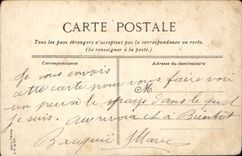 CARTE POSTALE
Tous les pays étrangers n'acceptent pas la correspondance au recto.
(Se renseigner à la poste.)
Correspondance
Adresse du destinataire
Je vous envois
cette carte pour vous faire voir
M
un peu le pays dans le quel
je suis. Au revoir et à Bientôt
Marie